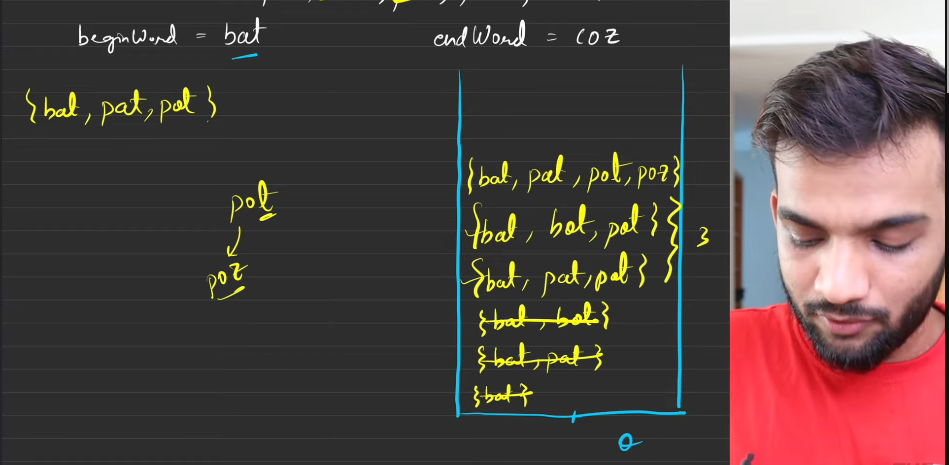 beginWord = bat
endWord = coz
{bat, pat, pot}
pot
poz
{bat, pat, pot, poz}
{bat, bot, pot}
{bat, pat, pot}
3
{bat, bot}
{bat, pat}
{bat}
Q